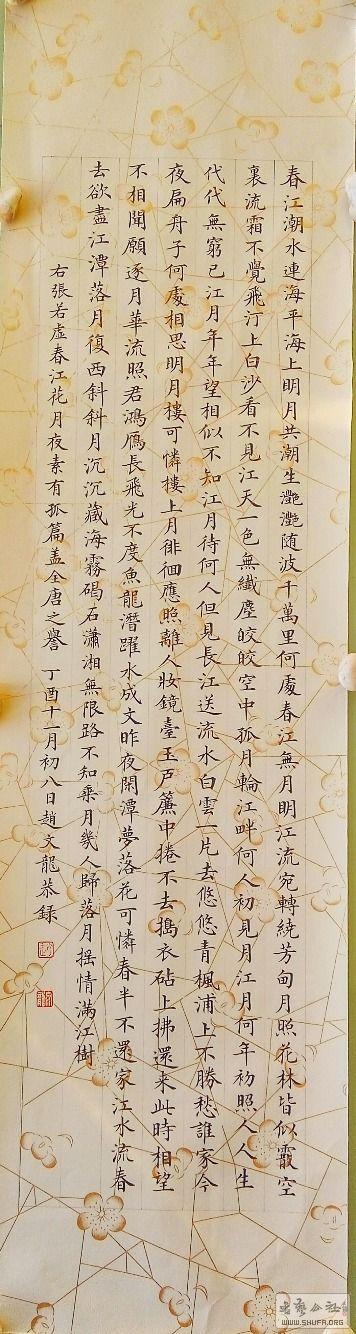 春江潮水連海平海上明月共潮生灔灔随波千萬里何處春江無月明江流宛轉繞芳甸月照花林皆似霰空
裏流霜不覺飛汀上白沙看不見江天一色無纖塵皎皎空中孤月輪江畔何人初見月江月何年初照人人生
代代無窮已江月年年望相似不知江月待何人但見長江送流水白雲一片去悠悠青楓浦上不勝愁誰家今
夜扁舟子何處相思明月樓可憐樓上月徘徊應照離人妝鏡臺玉戶簾中捲不去擣衣砧上拂還來此時相望
不相聞願逐月華流照君鴻鴈長飛光不度魚龍潛躍水成文昨夜閑潭夢落花可憐春半不還家江水流春
去欲盡江潭落月復西斜斜月沉沉藏海霧碣石瀟湘無限路不知乘月幾人歸落月摇情滿江樹
右張若虛春江花月夜素有孤篇盖全唐之譽 丁酉十一月初八日趙文龍恭録
書藝公社
WWW.SHUFA.ORG